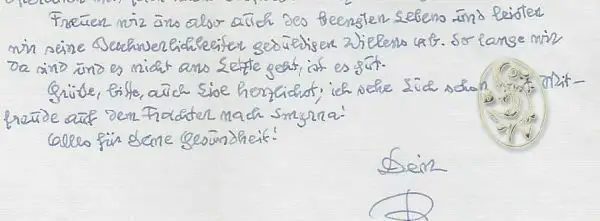 Freuen wir uns also auch des beengten Lebens und leisten
wir seine Beschwerlichkeiten geduldigen Willens ab. So lange wir
da sind und es nicht ans Letzte geht, ist es gut.
Grüße, bitte, auch Lise herzlichst; ich sehe Dich schon mit
freude auf dem Frachter nach Smyrna!
Alles für Deine Gesundheit!
Dein